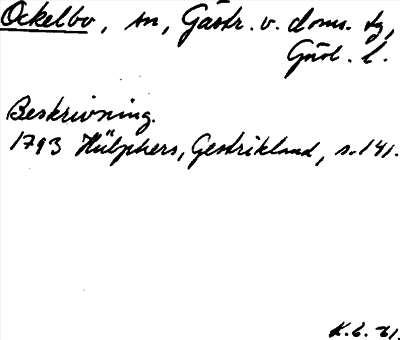 Ockelbo, sn, Gästr. v. doms. tg,
Gävl. l.
Beskrivning.
1793 Hülphers, Gestrikland, s. 141.